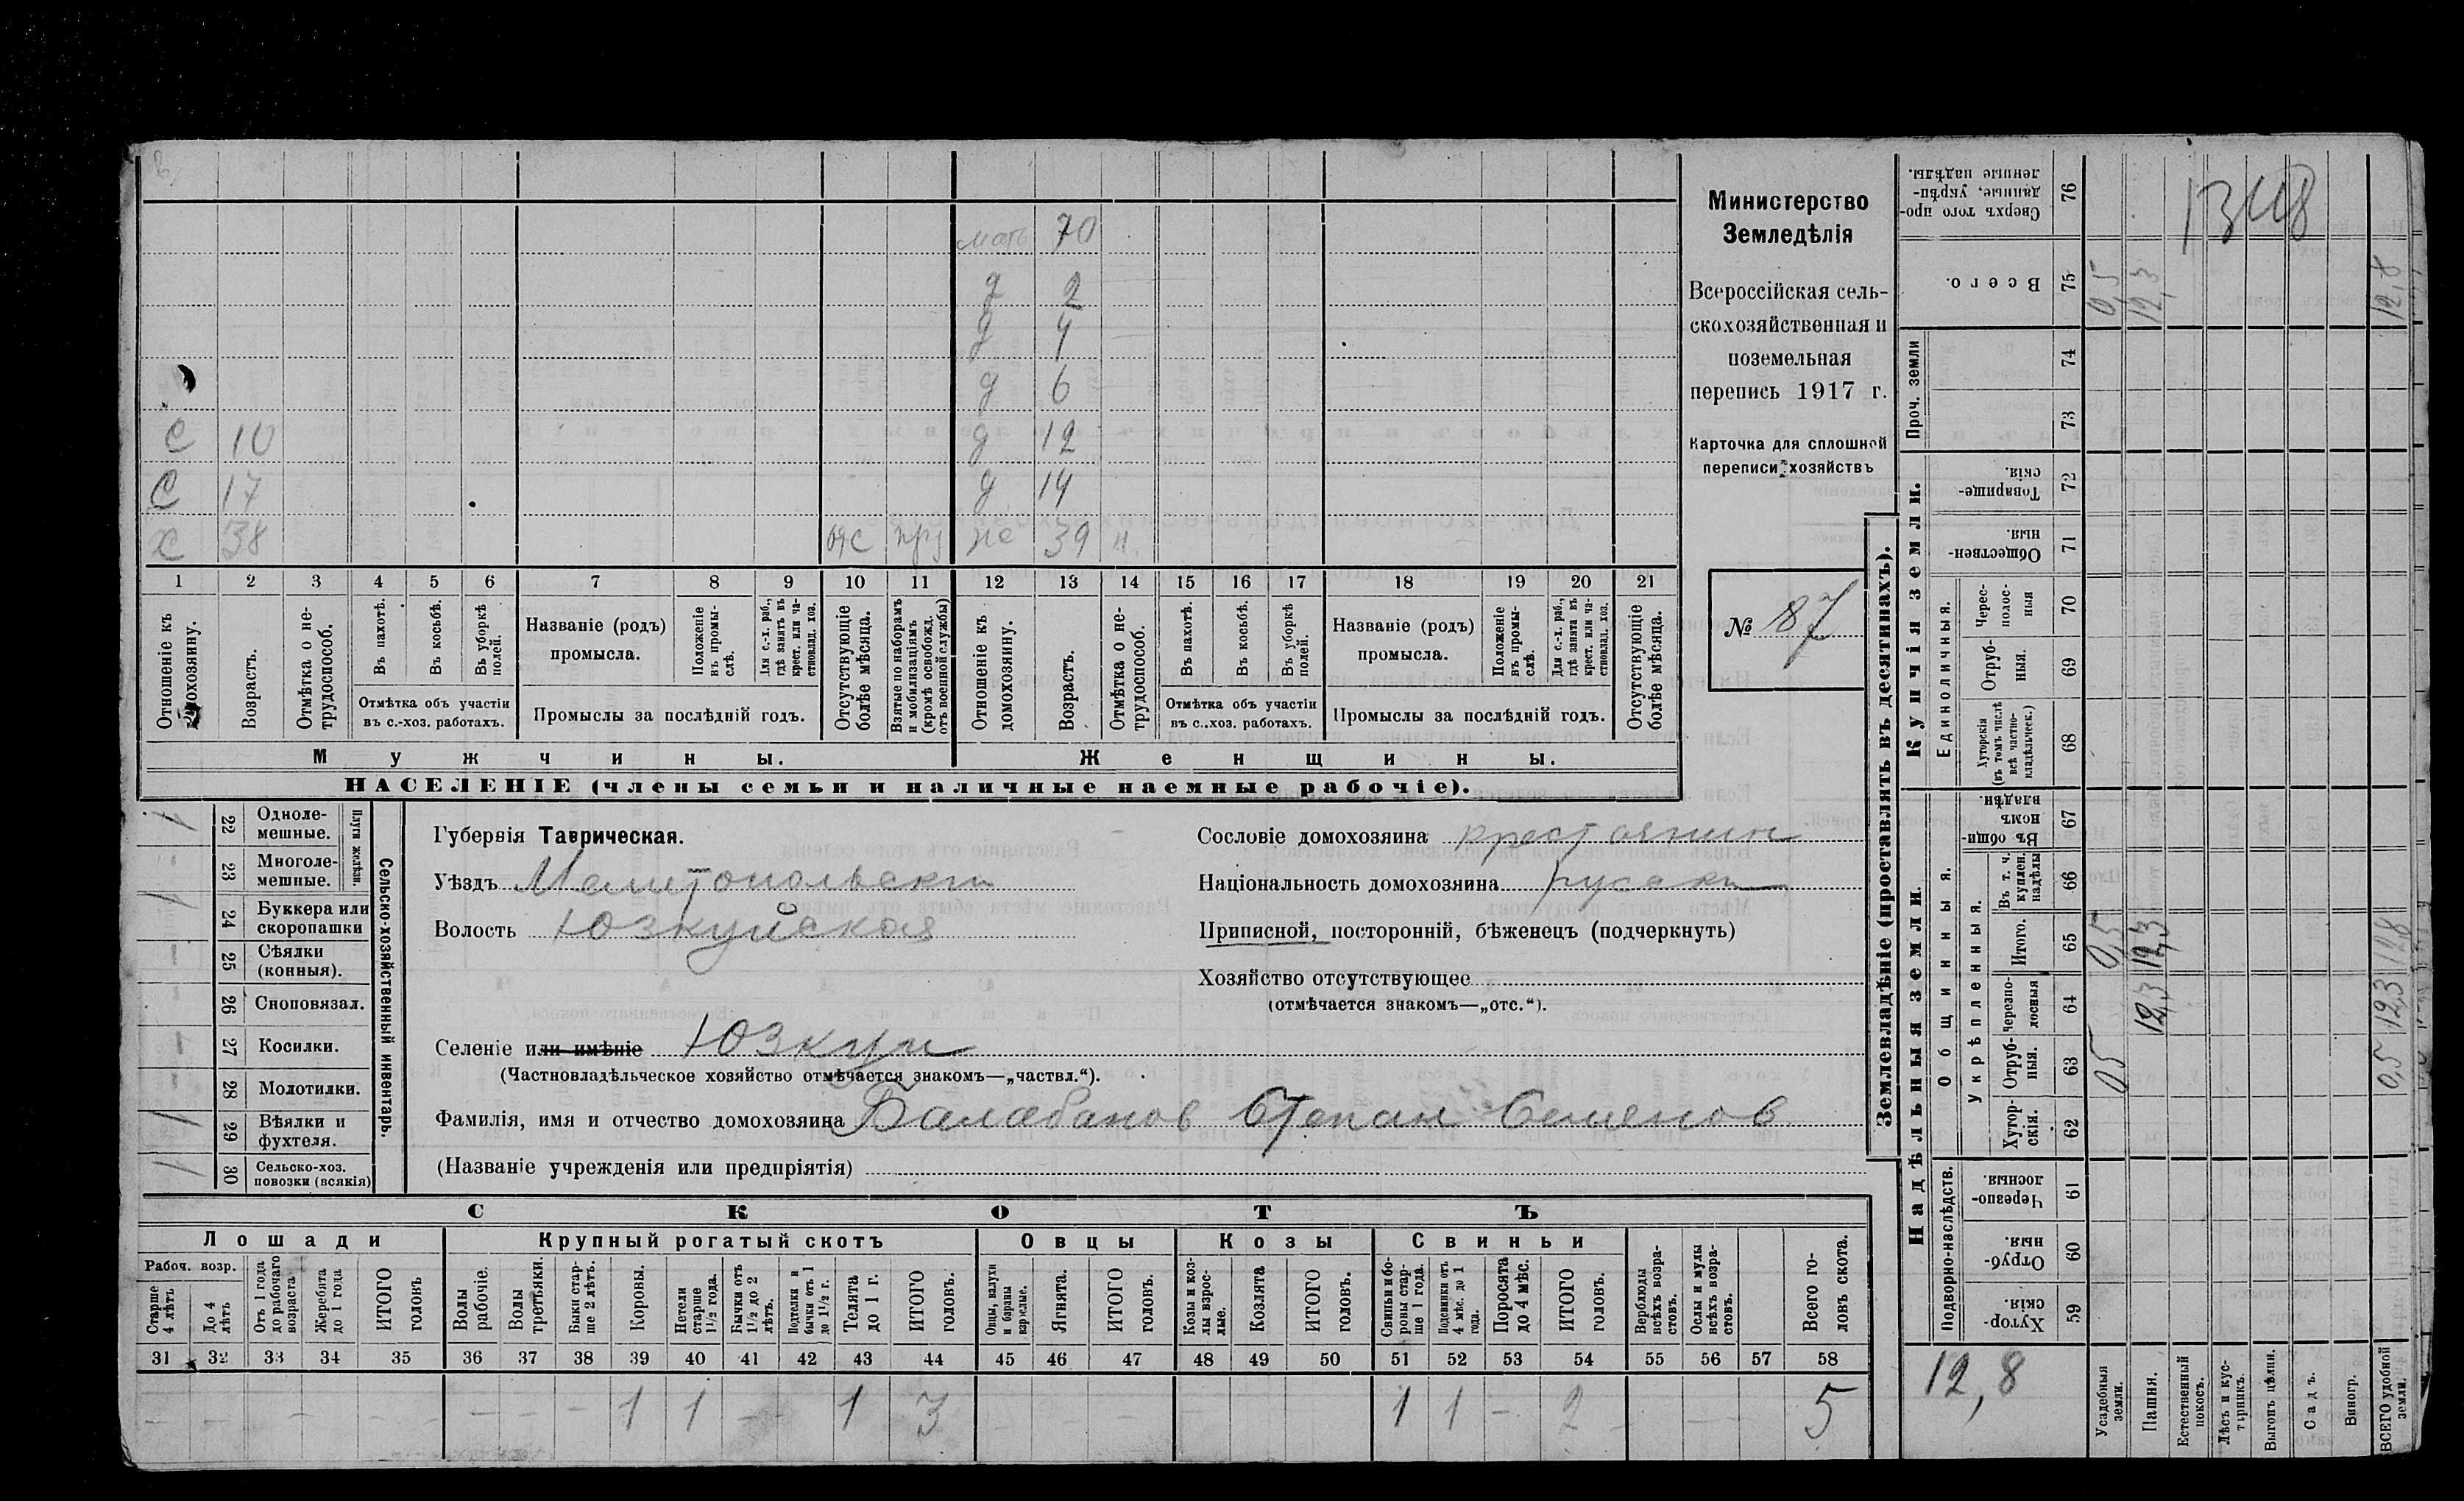 мать 70
д 2
д 4
д 6
С 10 д 12
С 17 д 14
Х 38 отс жс 39 н.
1 2 3 4 5 6 7 8 9 10 11 12 13 14 15 16 17 18 19 20 21
Отношеніе къ домохозяину.
Возрастъ.
Отмѣтка о не-
трудоспособ.
Въ пахотѣ.
Въ косьбѣ.
Въ уборкѣ
полей.
Отмѣтка объ участіи
въ с.-хоз. работахъ.
Названіе (родъ)
промысла.
Положеніе
въ промы-
слѣ.
Для с.-х. раб.,
гдѣ занятъ въ
крест. или ча-
стновлад. хоз.
Промыслы за послѣдній годъ.
Отсутствующіе
болѣе мѣсяца.
Взятые по наборамъ
и мобилизаціямъ
(кромѣ освобожд.
отъ военной службы)
Отношеніе къ
домохозяину.
Возрастъ.
Отмѣтка о не-
трудоспособ.
Въ пахотѣ.
Въ косьбѣ.
Въ уборкѣ
полей.
Отмѣтка объ участіи
въ с.-хоз. работахъ.
Названіе (родъ)
промысла.
Положеніе
въ промы-
слѣ.
Для с.-х. раб.,
гдѣ занята въ
крест. или ча-
стновлад. хоз.
Промыслы за послѣдній годъ.
Отсутствующіе
болѣе мѣсяца.
Мужчины.
Женщины.
НАСЕЛЕНІЕ (члены семьи и наличные наемные рабочіе).
Министерство
Земледѣлія
Всероссійская сель-
скохозяйственная и
поземельная
перепись 1917 г.
Карточка для сплошной
переписи хозяйствъ
№ 87
22 Одноле-
мешные.
23 Многоле-
мешные.
Плуги желѣзн.
24 Буккера или
скоропашки
25 Сѣялки
(конныя).
26 Сноповязал.
27 Косилки.
28 Молотилки.
29 Вѣялки и
фухтеля.
30 Сельско-хоз.
повозки (всякія)
Сельско-хозяйственный инвентарь.
Губернія Таврическая.
Уѣздъ Мелитопольскій
Волость Юзкуйская
Сословіе домохозяина крестьянин
Національность домохозяина
Приписной, посторонній, бѣженецъ (подчеркнуть)
Хозяйство отсутствующее
(отмѣчается знакомъ—„отс.“).
Селеніе или имѣніе Юзкуи
(Частновладѣльческое хозяйство отмѣчается знакомъ—„частвл.“).
Фамилія, имя и отчество домохозяина Балабанов Степан Семенов
(Названіе учрежденія или предпріятія)
СКОТЪ
Лошади Крупный рогатый скотъ Овцы Козы Свиньи
Рабоч. возр.
Старше
4 лѣтъ
До 4
лѣтъ
Отъ 1 года
до рабочаго
возраста
Жеребята
до 1 года
ИТОГО
головъ
Волы
рабочіе.
Волы
третьяки.
Быки стар-
ше 2 лѣтъ.
Коровы.
Нетели
старше
1½ года.
Бычки отъ
1½ до 2
лѣтъ.
Подтелки и
бычки отъ 1
до 1½ г.
Телята
до 1 г.
ИТОГО
головъ.
Овцы, валухи
и бараны
взрослые.
Ягнята.
ИТОГО
головъ.
Козы и коз-
лы взрос-
лые.
Козлята
ИТОГО
головъ.
Свиньи и бо-
ровы стар-
ше 1 года.
Подсвинки отъ
4 мѣс. до 1
года.
Поросята
до 4 мѣс.
ИТОГО
головъ.
Верблюды
всѣхъ возра-
стовъ.
Ослы и мулы
всѣхъ возра-
стовъ.
Всего го-
ловъ скота.
31 32 33 34 35 36 37 38 39 40 41 42 43 44 45 46 47 48 49 50 51 52 53 54 55 56 57 58
1 1 1 3 1 1 2 5
Землевладѣніе (проставлять въ десятинахъ).
Купчія земли.
Надѣльныя земли.
Сверхъ того про-
данные, укрѣп-
ленные надѣлы.
76
Всего.
75 0,5 12,3 12,8
Проч. земли
74
73
Товарище-
скія.
72
Обществен-
ныя.
71
Единоличныя.
Черес-
полос-
ныя
70
Отруб-
ныя.
69
Хуторскія
(въ томъ числѣ
всѣ частно-
владѣльческ.)
68
Общинныя.
Въ общи-
номъ
владѣн.
67
Укрѣпленныя.
Въ т. ч.
куплен.
надѣлы
66
Итого.
65 0,5 12,3 12,8
Черезпо-
лосныя
64 12,3 12,3
Отруб-
ныя.
63 0,5 0,5
Хутор-
скія.
62
Подворно-наслѣдств.
Черезпо-
лосныя.
61
Отруб-
ныя.
60
Хутор-
скія.
59
12,8
Усадебныя
земли.
Пашня.
Естественный
покосъ.
Лѣсъ и кус-
тарникъ.
Выгонъ цѣлин.
Садъ.
Виногр.
ВСЕГО удобной
земли.